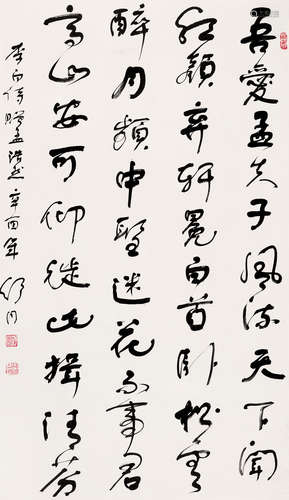 吾愛孟夫子風流天下聞
紅顏弃軒冕白首臥松雲
醉月頻中聖迷花不事君
高山安可仰徒此揖清芬
李白詩贈孟浩然辛酉年舒同